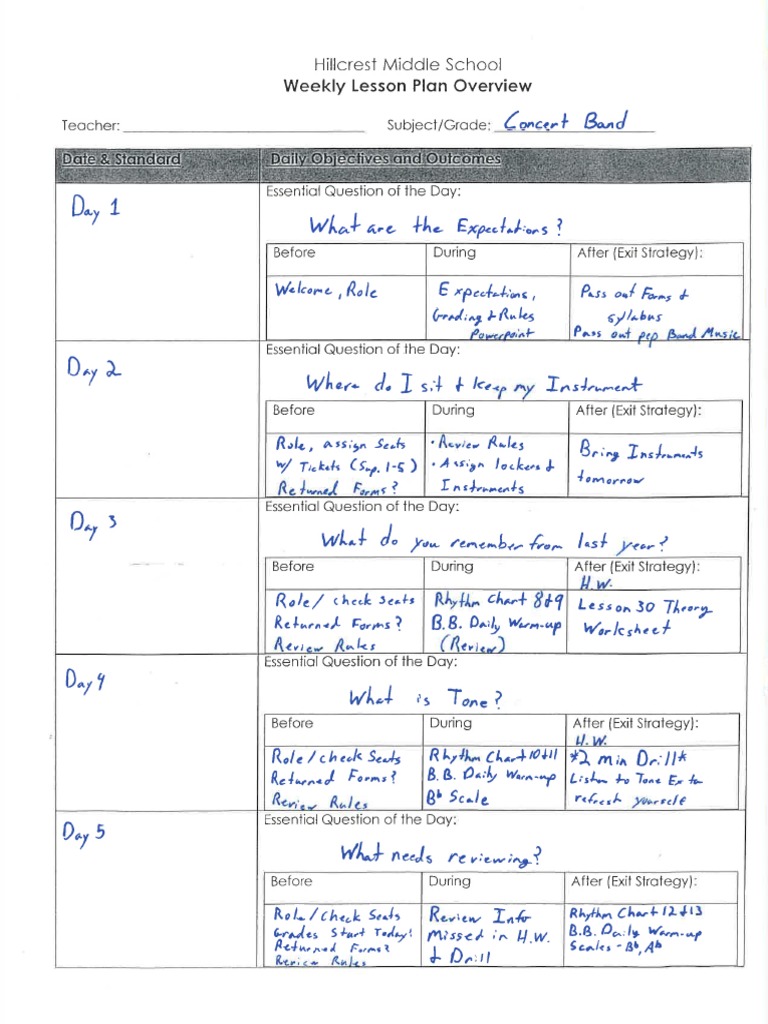 Hillcrest Middle School
Weekly Lesson Plan Overview
Teacher: Subject/Grade: Concert Band
Date & Standard Daily Objectives and Outcomes
Day 1
Essential Question of the Day:
What are the Expectations?
Before During After (Exit Strategy):
Welcome, Role
Expectations,
Grading & Rules
Powerpoint
Pass out Forms &
syllabus
Pass out pep Band Music
Day 2
Essential Question of the Day:
Where do I sit & keep my Instrument
Before During After (Exit Strategy):
Role, assign seats
w/ Tickets (Sup. 1-5)
Returned Forms?
• Review Rules
• Assign lockers &
Instruments
Bring Instruments
tomorrow
Day 3
Essential Question of the Day:
What do you remember from last year?
Before During After (Exit Strategy):
H.W.
Role/ check seats
Returned Forms?
Review Rules
Rhythm Chart 8&9
B.B. Daily Warm-up
(Review)
Lesson 30 Theory
Worksheet
Day 4
Essential Question of the Day:
What is Tone?
Before During After (Exit Strategy):
H.W.
Role/check Seats
Returned Forms?
Review Rules
Rhythm Chart 10&11
B.B. Daily Warm-up
Bb Scale
*2 min Drill*
Listen to Tone Ex to
refresh yourself
Day 5
Essential Question of the Day:
What needs reviewing?
Before During After (Exit Strategy):
Role/Check Seats
Grades Start Today!
Returned Forms?
Review Rules
Review Info
Missed in H.W.
& Drill
Rhythm Chart 12&13
B.B. Daily Warm-up
Scales - Bb, Ab